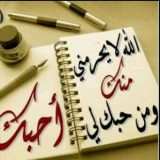 الله لايحرمني
منك
ومن حبك لي
أحبك